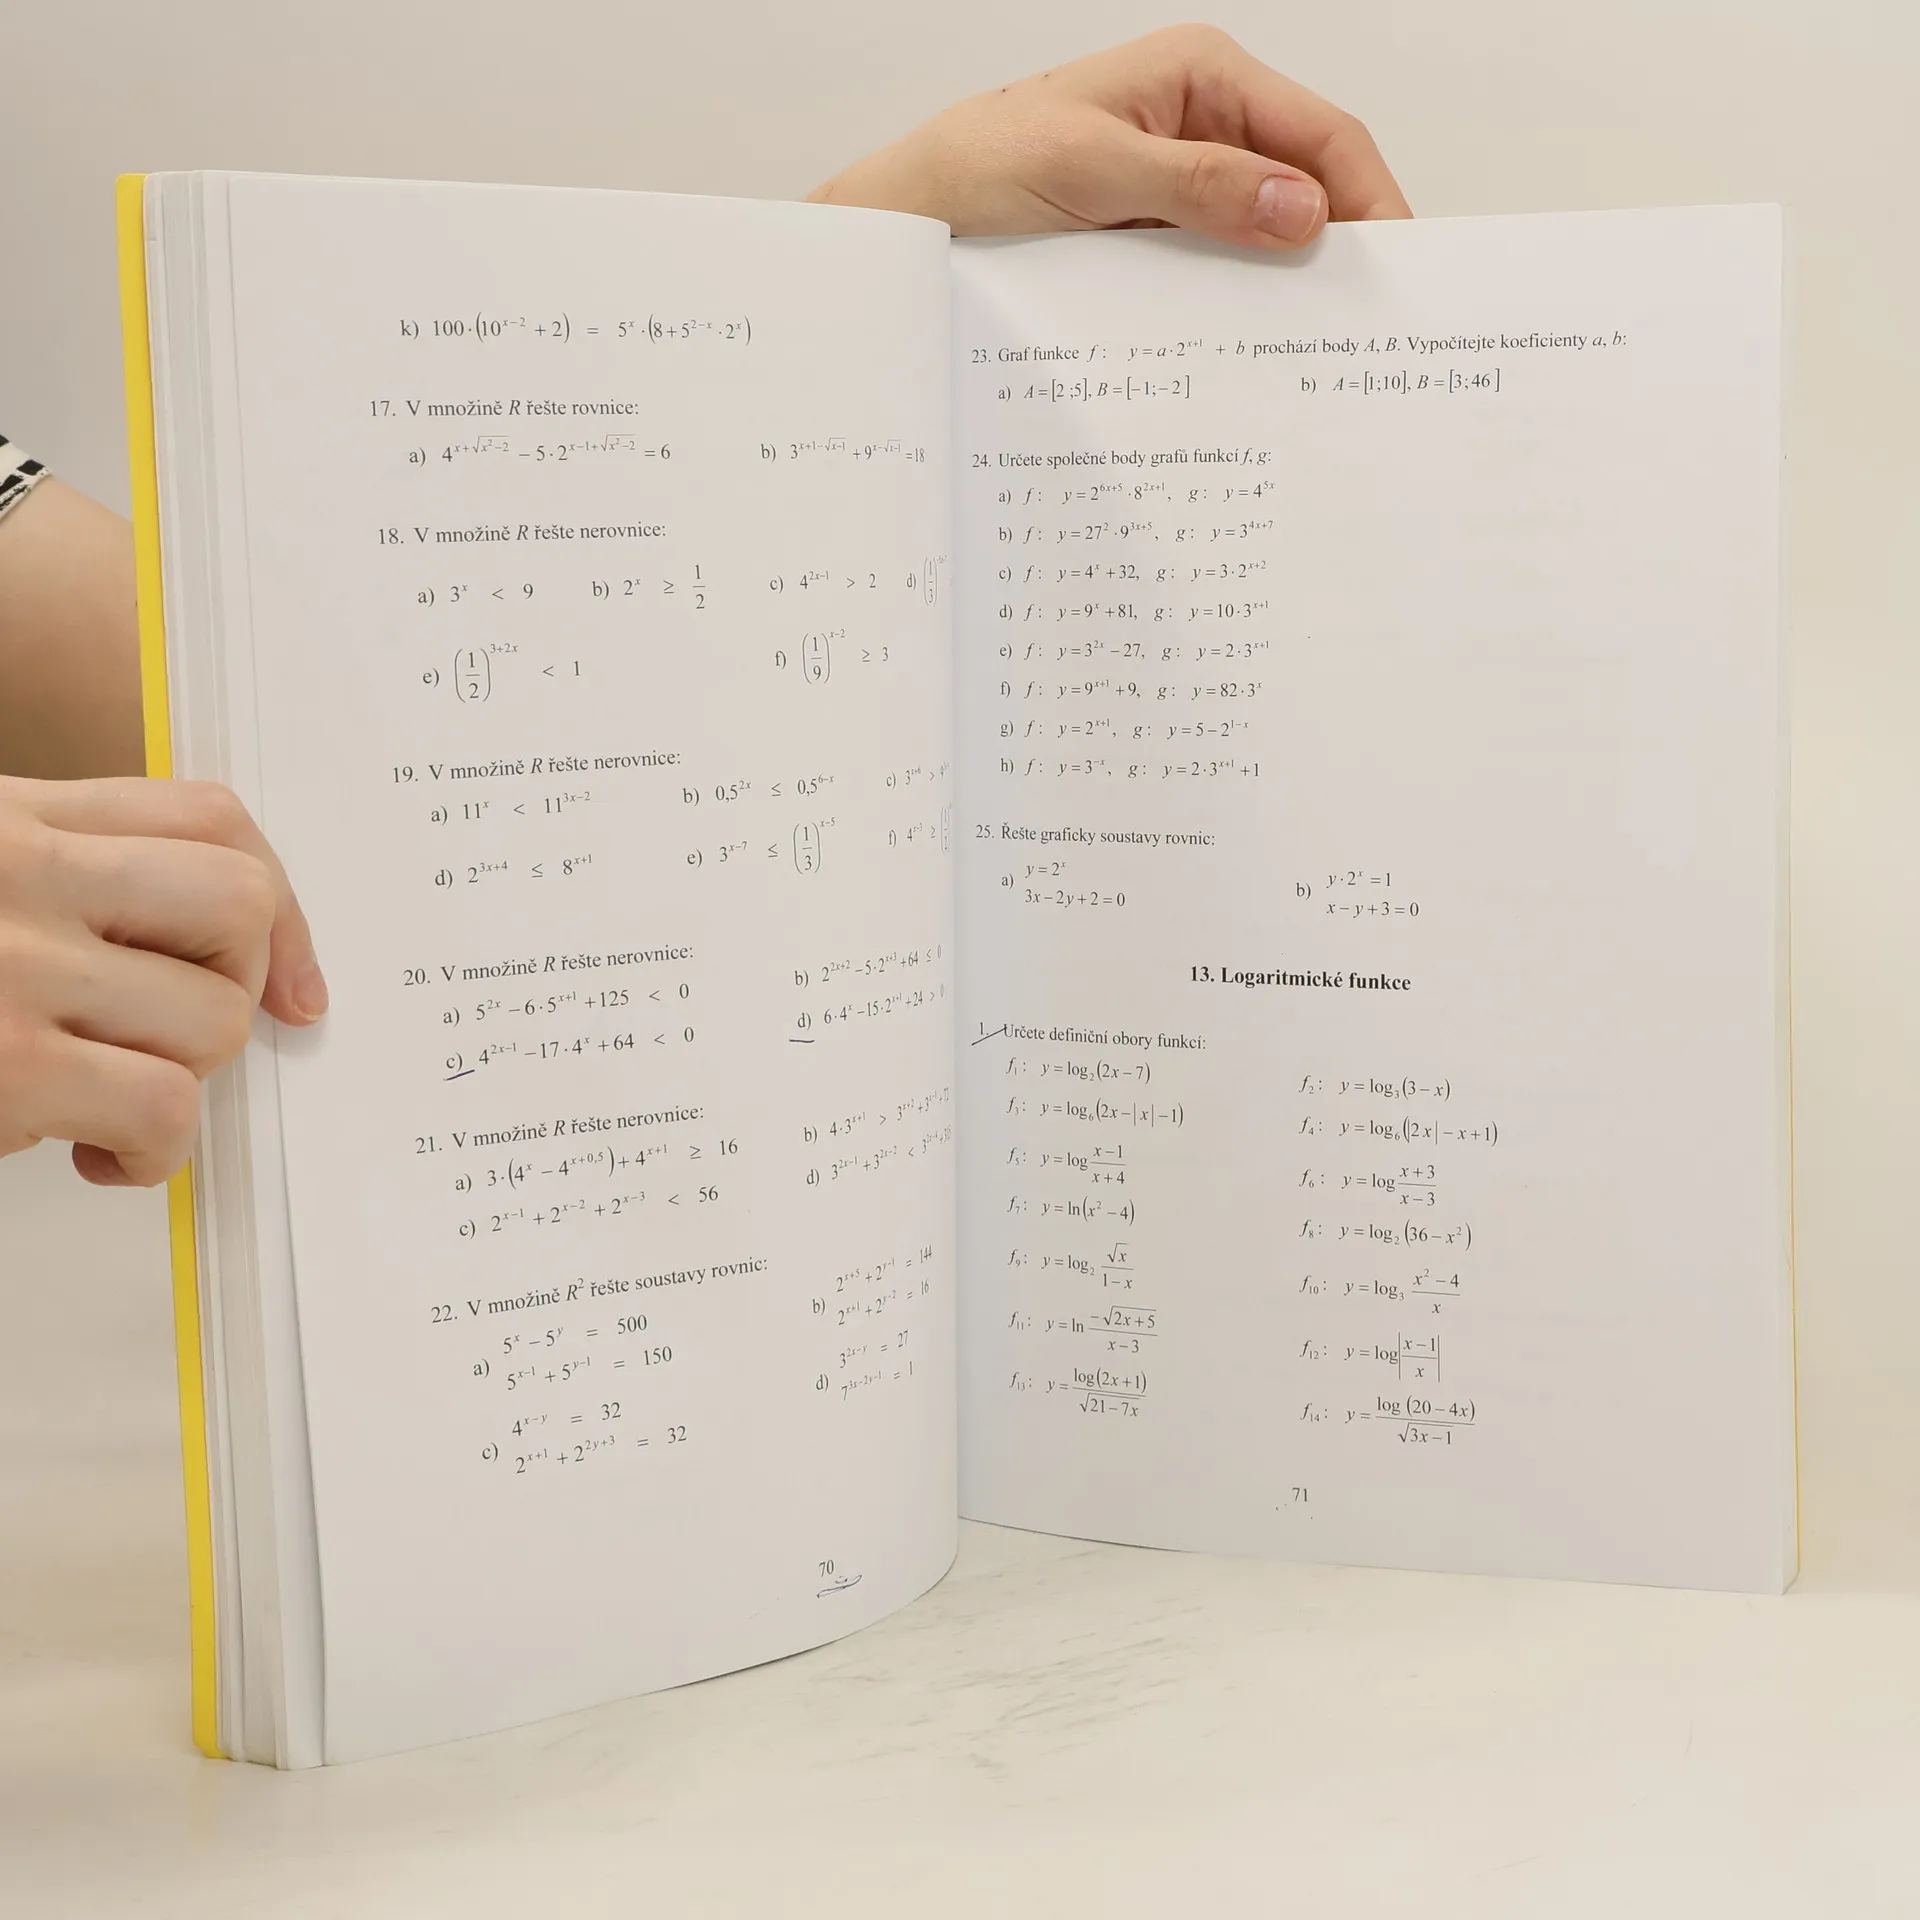 k) 100·(10^{x−2} + 2) = 5^x·(8+5^{2−x}·2^x)
17. V množině R řešte rovnice:
a) 4^{x+√(x²−2)} − 5·2^{x−1+√(x²−2)} = 6 b) 3^{x+1−√(x−1)} + 9^{x−√(x−1)} = 18
18. V množině R řešte nerovnice:
a) 3^x < 9 b) 2^x ≥ 1/2 c) 4^{2x−1} > 2 d) (1/3)
e) (1/2)^{3+2x} < 1 f) (1/9)^{x−2} ≥ 3
19. V množině R řešte nerovnice:
a) 11^x < 11^{3x−2} b) 0,5^{2x} ≤ 0,5^{6−x} c) 3^{x+6} > 4
d) 2^{3x+4} ≤ 8^{x+1} e) 3^{x−7} ≤ (1/3)^{x−5} f) 4^{x−3} ≥
20. V množině R řešte nerovnice:
a) 5^{2x} − 6·5^{x+1} + 125 < 0 b) 2^{2x+2} − 5·2^{x+3} + 64 ≤ 0
c) 4^{2x−1} − 17·4^x + 64 < 0 d) 6·4^x − 15·2^{x+1} + 24 > 0
21. V množině R řešte nerovnice:
a) 3·(4^x − 4^{x+0,5}) + 4^{x+1} ≥ 16 b) 4·3^{x+1} > 3^{x+2} + 3^{x−1} + 72
c) 2^{x−1} + 2^{x−2} + 2^{x−3} < 56 d) 3^{2x−1} + 3^{2x−2} <
22. V množině R² řešte soustavy rovnic:
a) 5^x − 5^y = 500 b) 2^{x+5} + 2^{y−1} = 144
5^{x−1} + 5^{y−1} = 150 2^{x+1} + 2^{y−2} = 16
c) 4^{x−y} = 32 d) 3^{2x−y} = 27
2^{x+1} + 2^{2y+3} = 32 7^{3x−2y−1} = 1
70
23. Graf funkce f: y = a·2^{x+1} + b prochází body A, B. Vypočítejte koeficienty a, b:
a) A = [2 ;5], B = [−1;−2] b) A = [1;10], B = [3;46]
24. Určete společné body grafů funkcí f, g:
a) f: y = 2^{6x+5}·8^{2x+1}, g: y = 4^{5x}
b) f: y = 27²·9^{3x+5}, g: y = 3^{4x+7}
c) f: y = 4^x + 32, g: y = 3·2^{x+2}
d) f: y = 9^x + 81, g: y = 10·3^{x+1}
e) f: y = 3^{2x} − 27, g: y = 2·3^{x+1}
f) f: y = 9^{x+1} + 9, g: y = 82·3^x
g) f: y = 2^{x+1}, g: y = 5 − 2^{1−x}
h) f: y = 3^{−x}, g: y = 2·3^{x+1} + 1
25. Řešte graficky soustavy rovnic:
a) y = 2^x b) y·2^x = 1
3x − 2y + 2 = 0 x − y + 3 = 0
13. Logaritmické funkce
1. Určete definiční obory funkcí:
f₁: y = log₂(2x − 7) f₂: y = log₃(3 − x)
f₃: y = log₆(2x − |x| − 1) f₄: y = log₆(|2x| − x + 1)
f₅: y = log (x−1)/(x+4) f₆: y = log (x+3)/(x−3)
f₇: y = ln(x² − 4) f₈: y = log₂(36 − x²)
f₉: y = log₂ √x/(1−x) f₁₀: y = log₃ (x²−4)/x
f₁₁: y = ln −√(2x+5)/(x−3) f₁₂: y = log|(x−1)/x|
f₁₃: y = log(2x+1)/√(21−7x) f₁₄: y = log (20−4x)/√(3x−1)
71